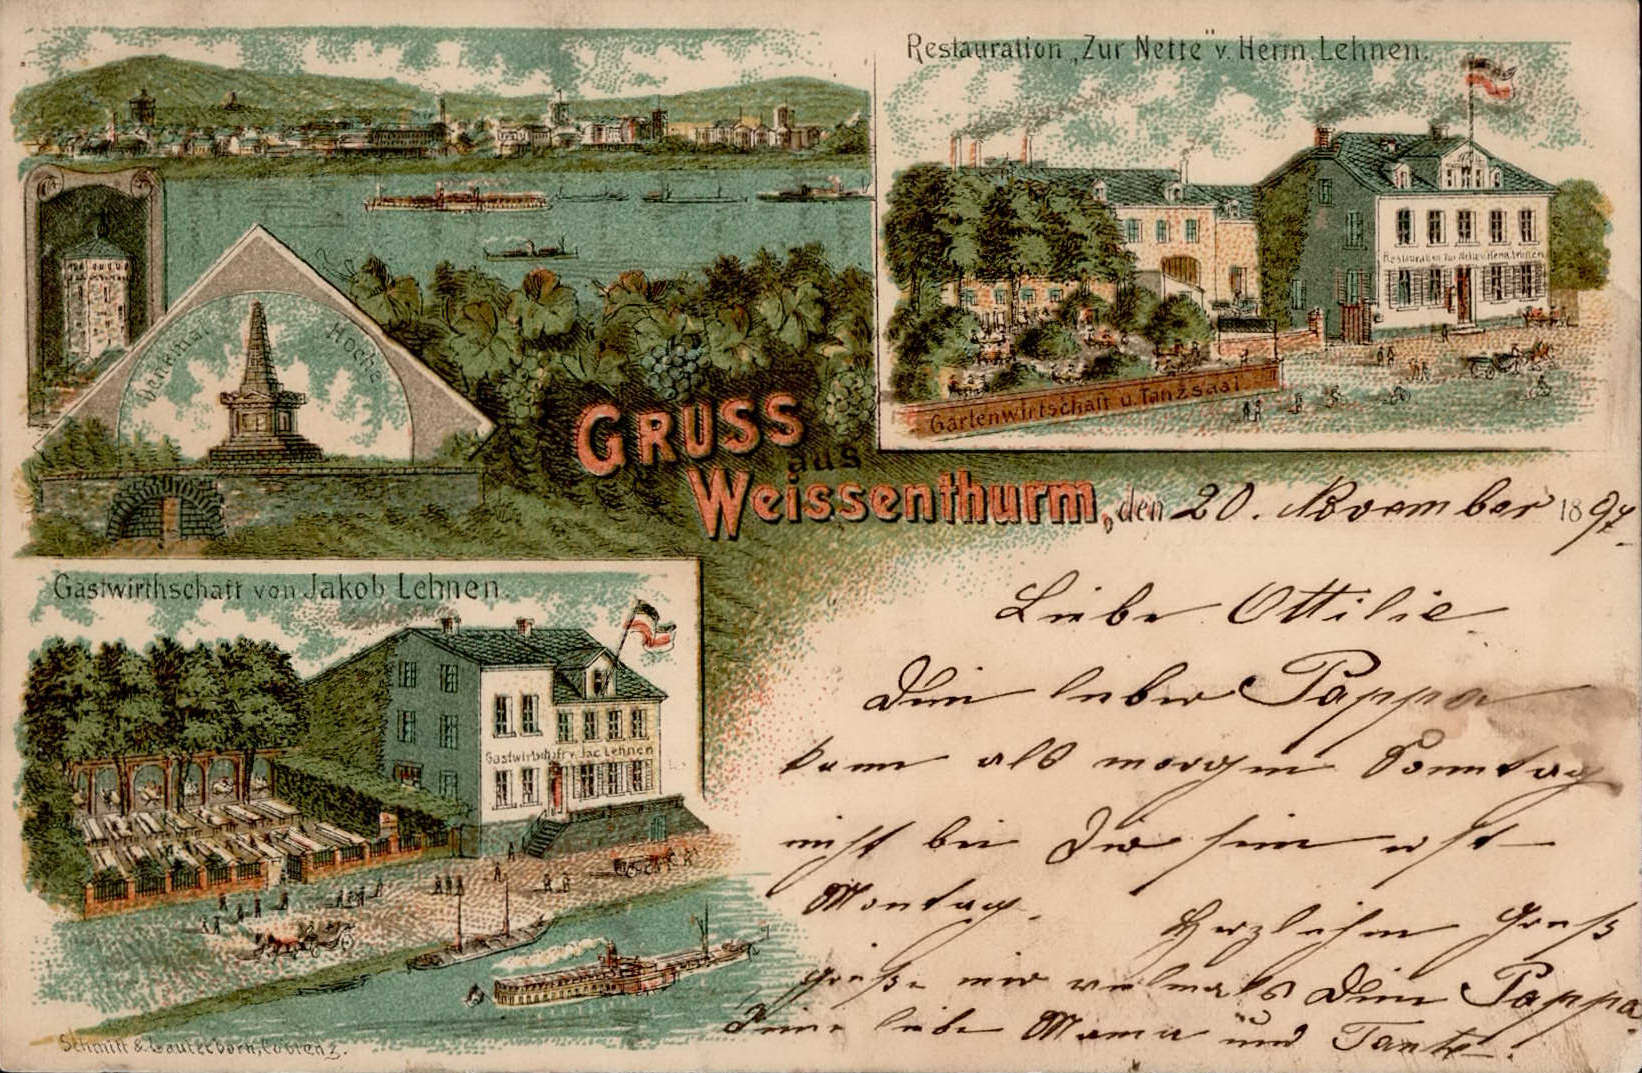 Restauration „Zur Nette" v. Herm. Lehnen.
Denkmal Hoche
Restauration Zur Nette v. Herm. Lehnen
Gartenwirtschaft u. Tanzsaal
GRUSS
aus
Weissenthurm, den 20. November 1897.
Gastwirthschaft von Jakob Lehnen.
Gastwirtschaft v. Jac. Lehnen
Liebe Ottilie
Dein lieber Pappa
kann als morgen Sonntag
nicht bei Dir sein erst
Montag. Herzlichen Gruß
grüße mir vielmals Dein Pappa.
Deine liebe Mama und Tante.
Schmitt & Lauterborn, Coblenz.